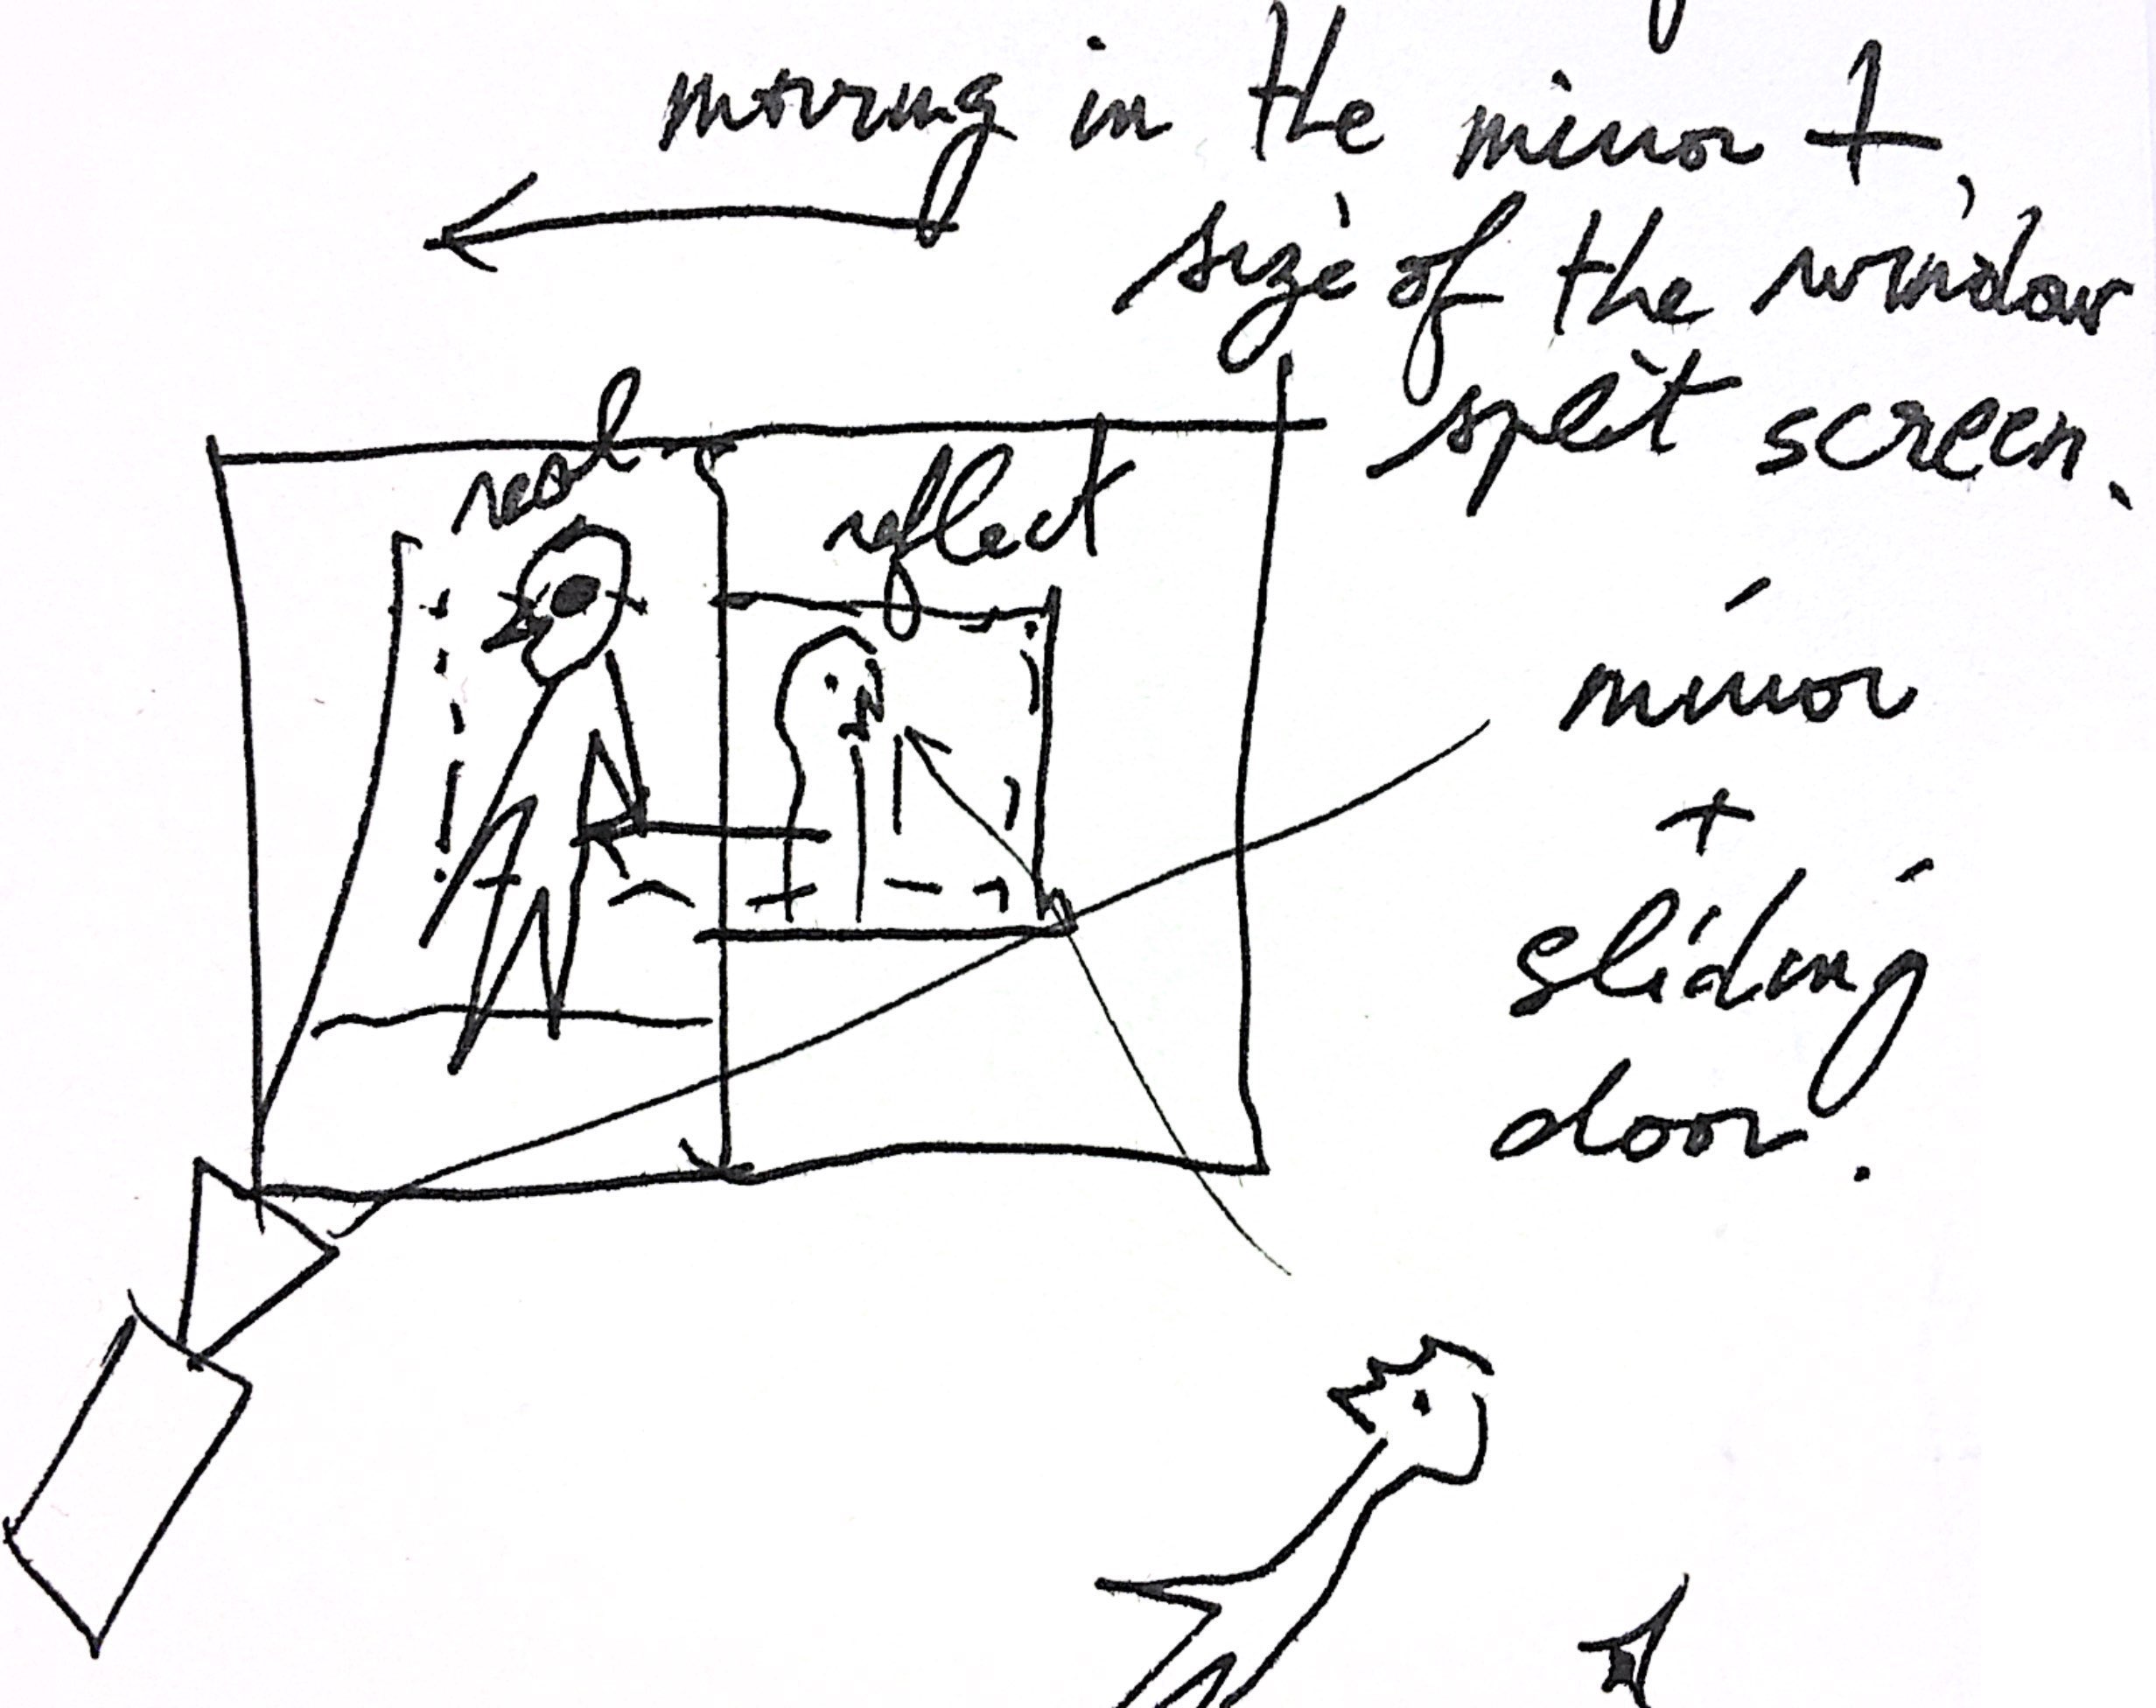 moving in the mirror +,
size of the window
split screen.
real
reflect
mirror
+
sliding
door.